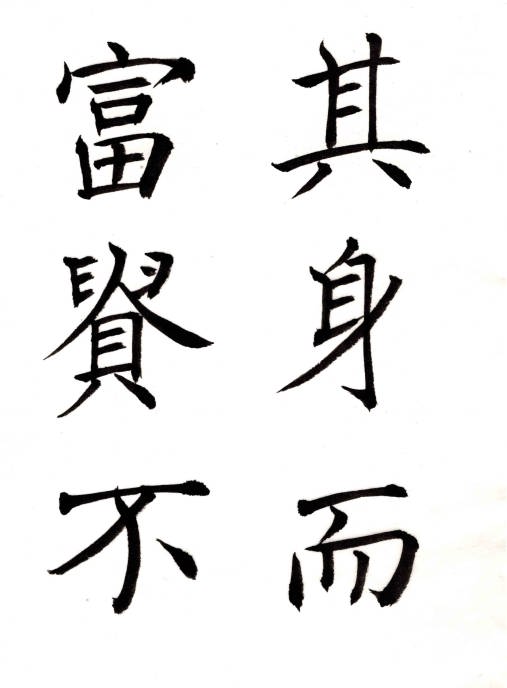 其身而
富貴不